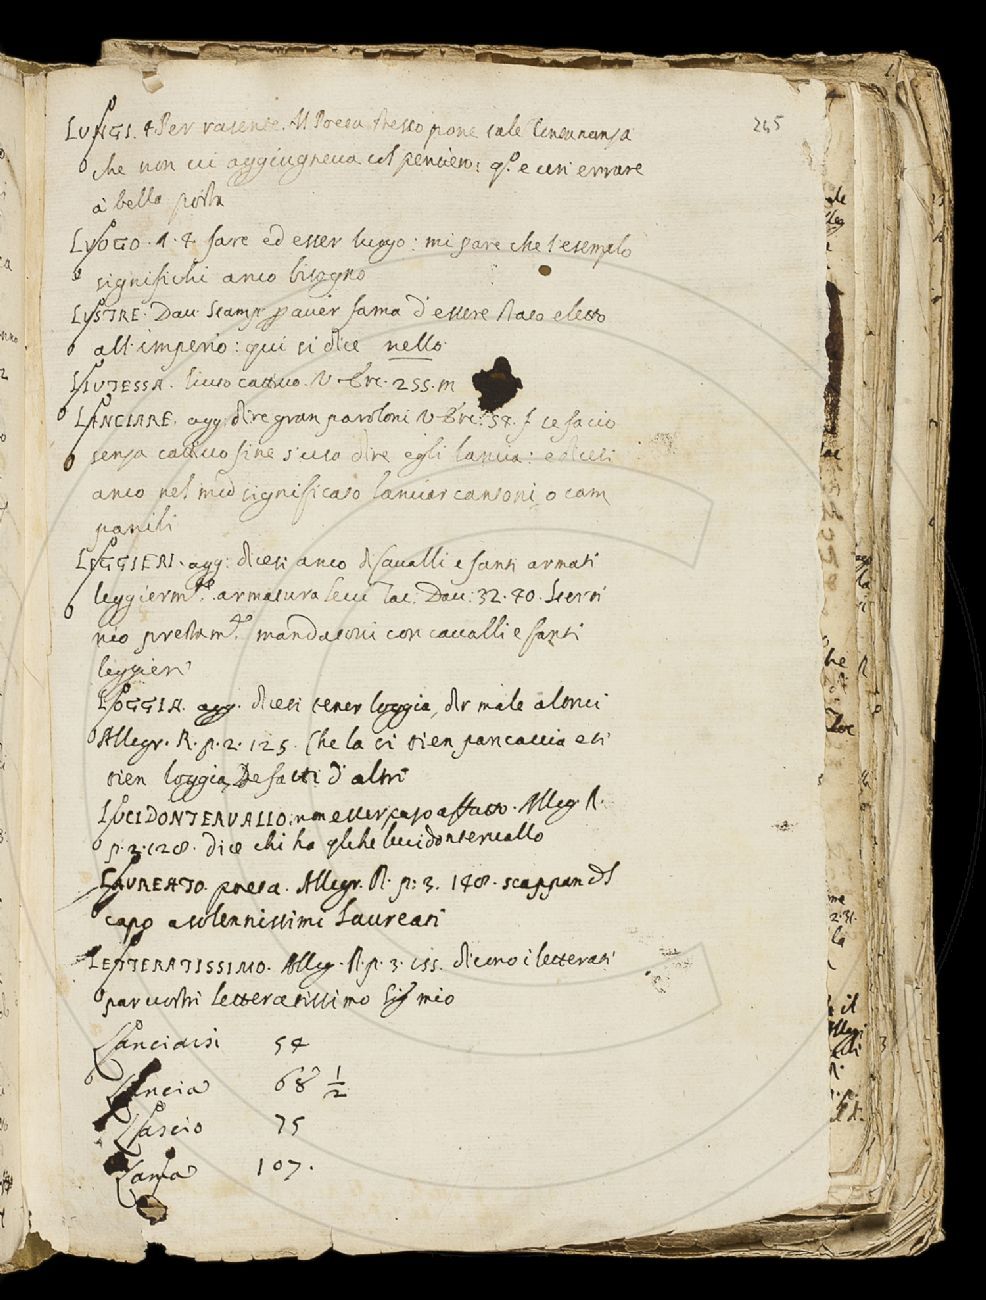 245
LUNGI. 4 Per rasente. Il Poeta stesso pone tale
che non vi aggiugneva col pensiero: qo. e un errare
a bella posta
LUOGO. 1. 4. fare ed esser luogo: mi pare che l'esemplo
significhi anco bisogno
LUSTRE. Dav. Stamp. p aver fama d'essere stato eletto
all'imperio: qui si dice nello
LIUTESSA. liuto cattivo. 255. m
LANCIARE. agg. dire gran paroloni 58. f se faccio
senza cattivo fine s'usa dire egli lancia: e dicesi
anco nel med significato lanciar cantoni, o cam
panili
LEGGIERI. agg: dicesi anco di cavalli e fanti armati
leggierm.te armatura leve Tac. Dav: 32. 40.
nio prestam.te mandatovi con cavalli e fanti
leggieri
LOGGIA. agg. dicesi tener loggia, dir male altrui
Allegr. R. p. 2. 125. Che la si tien pancaccia e si
tien loggia, De fatti d'altri
LUCIDONTERVALLO: non esser pazo affatto. Alleg. R.
p. 3. 128. dice chi ha qlche lucidontervallo
LAUREATO. poeta. Allegr. R. p: 3. 148. scappan del
capo a solennissimi Laureati
LETTERATISSIMO. Alleg. R. p. 3. 155. dicono i letterati
par vostri letteratissimo Sig mio
Lanciarsi 54
Lancia 68 1/2
Lascio 75
Lama 107.